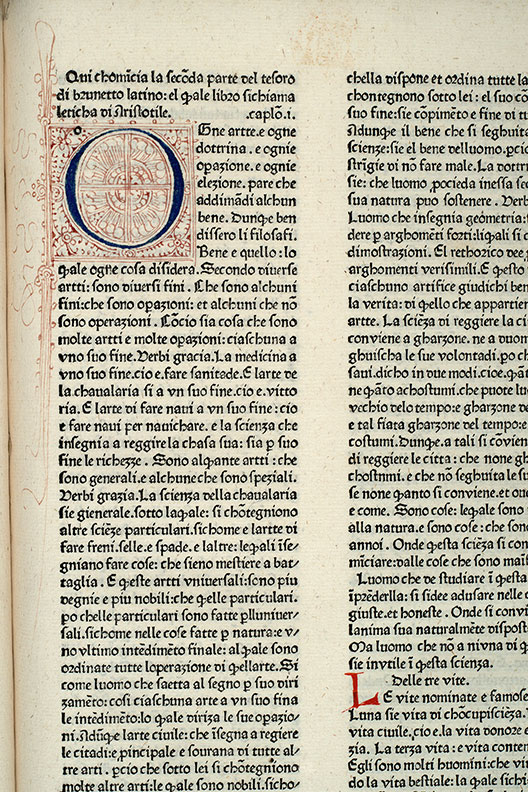 Qui chomīcia la secōda parte del tesoro
di brunetto latino: el quale libro sichiama
leticha di Aristotile. .caplōo.i.
OGne artte.e ogne
dottrina . e ognie
opazione . e ognie
elezione . pare che
addimādi alchun
bene . Dunque ben
dissero li filosafi.
Bene e quello : lo
quale ogne cosa disidera. Secondo diuerse
artti : sono diuersi fini . Che sono alchuni
fini:che sono opazioni: et alchuni che nō
sono operazioni . Cōcio sia cosa che sono
molte artti e molte opazioni: ciaschuna a
vno suo fine. Verbi gracia. La medicina a
vno suo fine.cio e.fare sanitede. E larte de
la.chaualaria si a vn suo fine.cio e.vitto
ria. E larte di fare naui a vn suo fine : cio
e fare naui per nauichare. e la scienza che
insegnia a reggire la chasa sua: sia p suo
fine le richezze . Sono alquante artti : che
sono generali.e alchune che sono speziali.
Verbi grazia. La scienza della chaualaria
sie gienerale.sotto laquale: si chōtegniono
altre sciēze particulari.sichome e lartte di
fare freni.selle.e spade. e laltre: lequali ise-
gniano fare cose: che sieno mestiere a bat-
taglia . E queste artti vniuersali : sono piu
degnie e piu nobili:che quelle particulari.
po chelle particulari sono fatte plluniuer-
sali.sichome nelle cose fatte p natura:e v-
no vltimo intēdimēto finale: al quale sono
ordinate tutte loperazione di quellarte. Si
come luomo che saetta al segno p suo diri
zamēto: cosi ciaschuna arte a vn suo fina
le intēdimēto: lo quale diriza le sue opazio-
ni. Adūque larte ciuile: che isegna a regiere
le citadi:e principale e sourana di tutte al-
tre arti . pcio che sotto lei si chōtegniono
molte altre arti: le quale sono nobili. sicho-
chella dispone et ordina tutte la
chontegnono sotto lei : el suo cō
suo fine: sie cōpimēto e fine di tu
Adunque il bene che si seghuita
scienze:sie el bene delluomo.pcio
strīgie di nō fare male. La dottrin
sie: che luomo pocieda inessa sc
sua natura puo sostenere . Verbi
Luomo che insegnia geometria: s
dere p arghomēti forti:liquali si c
dimostrazioni. El rethorico dee p
arghomenti verisimili. E questo
ciaschuno artifice giudichi ben
la verita: di quello che appartier
artte. La sciēza di reggire la ci
conviene a gharzone. ne a duom
ghuischa le sue volontadi.po ch
saui.dicho in due modi.cioe.quāt
ne quāto achostumi.che puote lu
vechio delo tempo:e gharzone d
e tal fiata gharzone del tempo:e
costumi. Dunque.a tali si cōvien
di reggire le citta : che none gh
chostumi. e che nō seghuita le su
se none quanto si conviene.et ou
e come. Sono cose: lequale sono
alla natura.e sono cose : che son
annoi . Onde questa sciēza si con
mīciare:dalle cose che sono man
Luomo che de studiare ī questa
ipzēderlla: si sidee adusare nelle c
giuste.et honeste . Onde si convi
lanima sua naturalmēte dispost
Ma luomo che nō a niuna di q
sie invtile ī questa scienza.
Delle tre vite.
LE vite nominate e famose
Luna sie vita di chōcupiscēza.
vita ciuile.cio e.la vita donore e
zia. La terza vita : e vita conten
Egli sono molti huomini:che viu
do la vita bestiale: la quale sichi